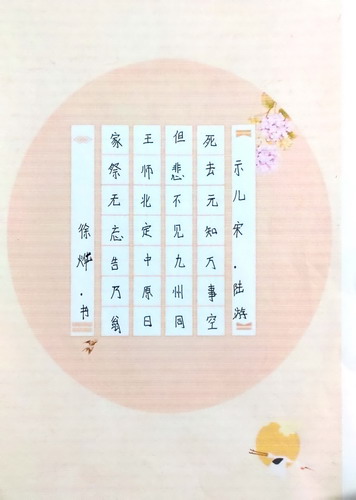 示儿宋·陆游
死去元知万事空
但悲不见九州同
王师北定中原日
家祭无忘告乃翁
徐·书